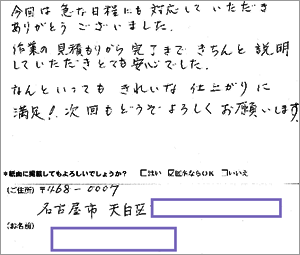 今回は急な日程にも対応して いただき
ありがとう ございました.
作業の 見積もりから 完了まで きちんと 説明
して いただき とても 安心でした.
なんと いっても きれいな 仕上がり に
満足!. 次回も どうぞ よろしく お願いします
*紙面に掲載してもよろしいでしょうか? □はい ☑匿名ならOK □いいえ
(ご住所) 〒468-0007
名古屋市 天白区
(お名前)